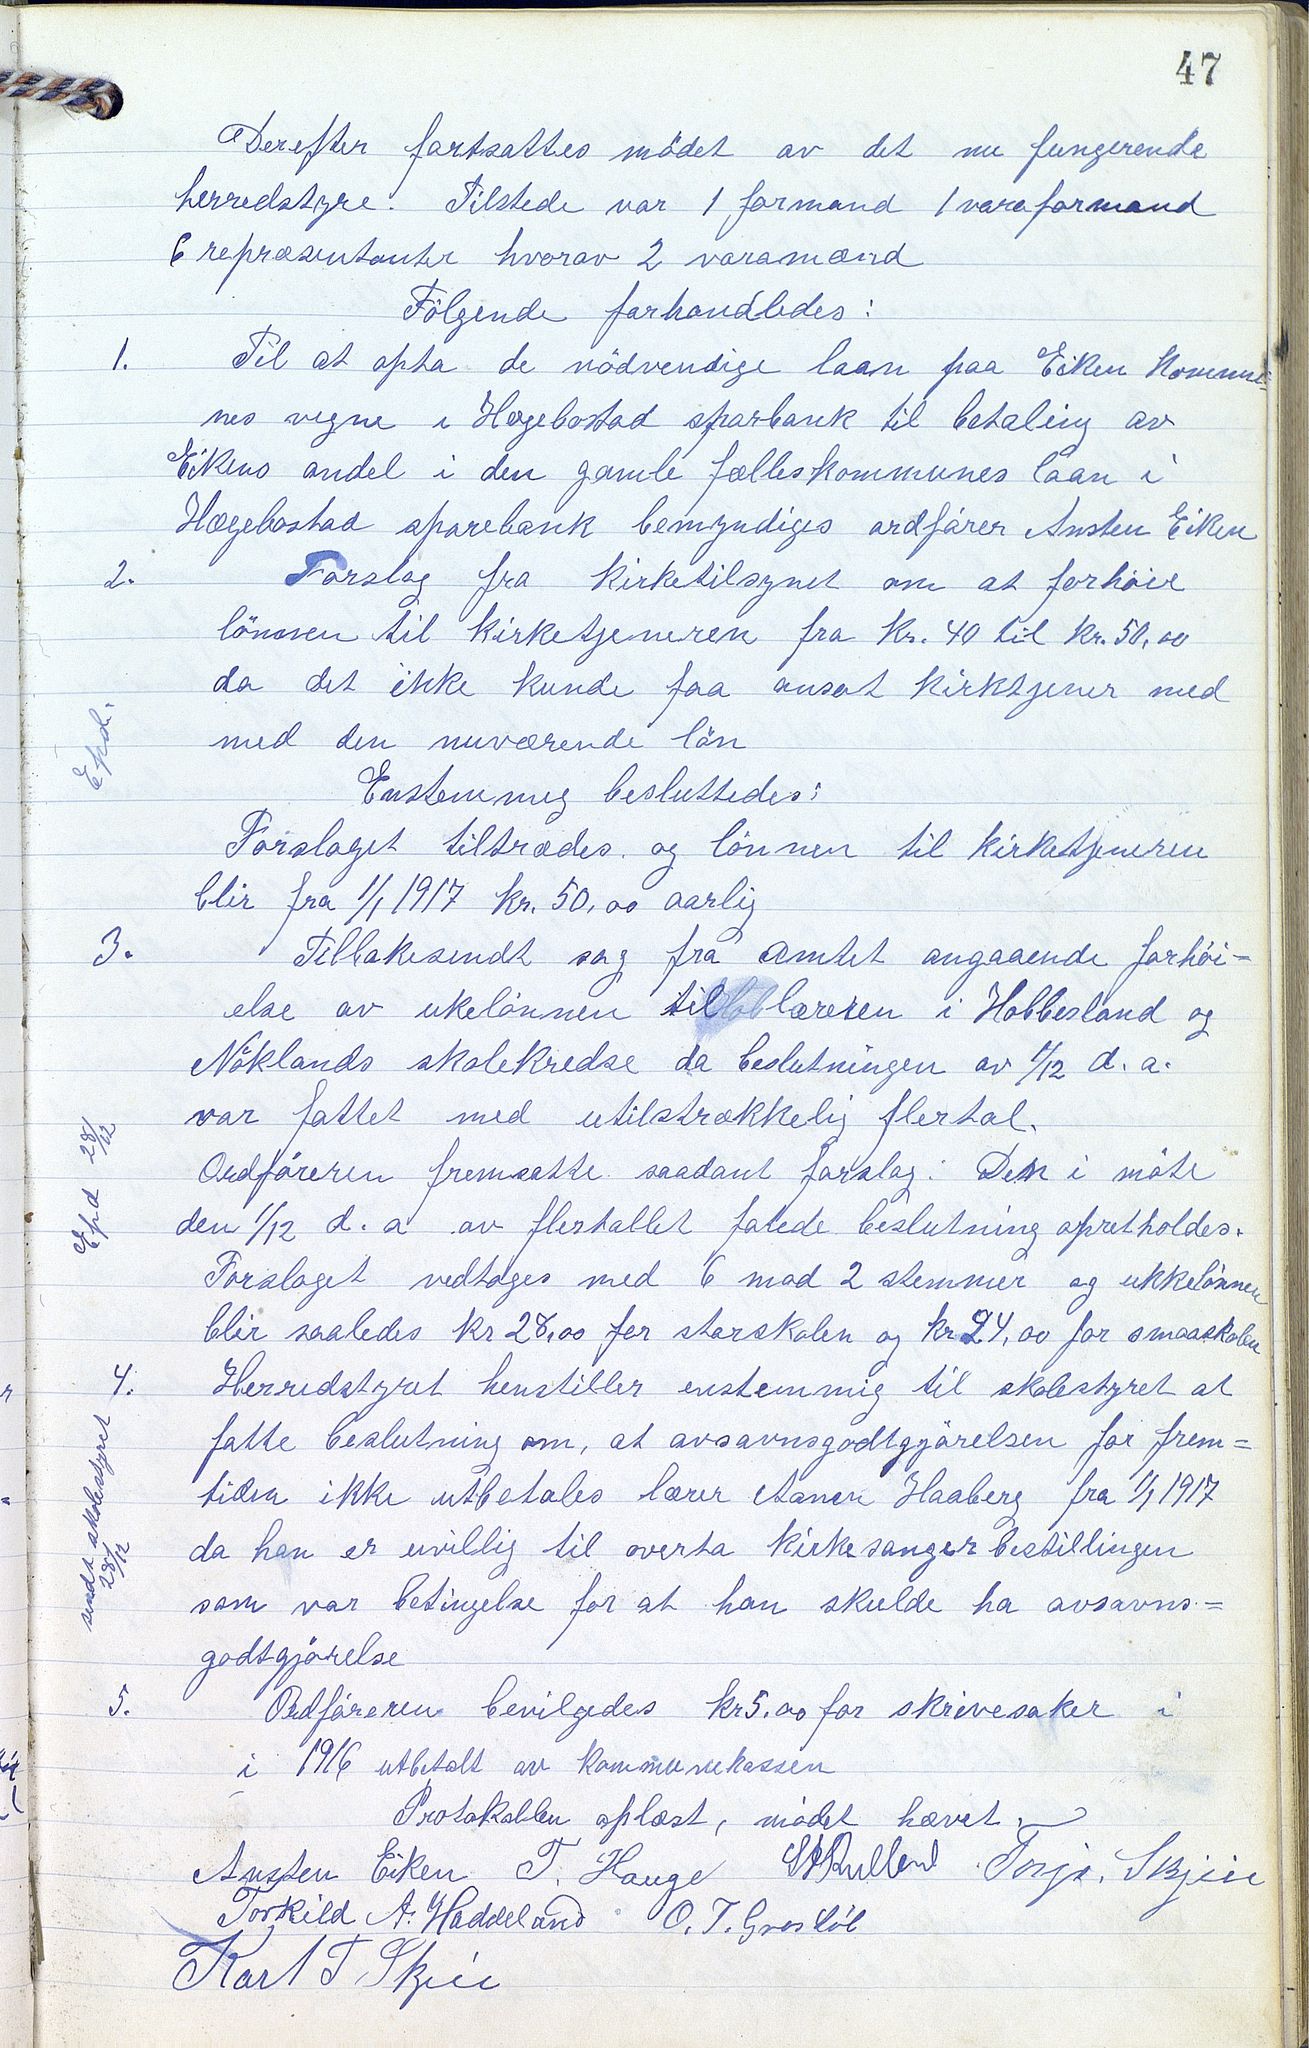 47
Derefter fortsattes mödet av det nu fungerende
herredstyre. Tilstede var 1 formand 1 varaformand
6 repræsentanter hvorav 2 varamænd
Fölgende forhandledes:
1. Til at opta de nödvendige laan paa Eiken Kommu=
nes vegne i Hægebostad sparbank til betaling av
Eikens andel i den gamle fælleskommunes laan i
Hægebostad sparebank bemyndiges ordförer Ansten Eiken
2. Forslag fra kirketilsynet om at forhöie
lönnen til kirketjeneren fra kr. 40 til kr. 50,00
da det ikke kunde faa ansat kirktjener med
med den nuværende lön
Expd.
Enstemmig besluttedes:
Forslaget tiltrædes og lönnen til kirketjeneren
blir fra 1/1 1917 kr. 50,00 aarlig
3. Tilbakesendt sag fra amtet angaaende forhöi=
else av ukelönnen til læreren i Hobbesland og
Nöklands skolekredse da beslutningen av 1/12 d. a.
var fattet med utilstrækkelig flertal.
Expd 28/12
Ordföreren fremsatte saadant forslag: Den i möte
den 1/12 d. a av flertallet fatede beslutning opretholdes.
Forslaget vedtages med 6 mod 2 stemmer og ukkelönnen
blir saaledes kr 28,00 for storskolen og kr 24,00 for smaaskolen
4. Herredstyret henstiller enstemmig til skolestyret at
fatte beslutning om, at avsavnsgodtgjörelsen for frem=
tiden ikke utbetales lærer Aanen Haaberg fra 1/1 1917
da han er uvillig til overta kirkesangerbestillingen
som var betingelse for at han skulde ha avsavns=
godtgjörelse
sendt skolestyret
28/12
5. Ordföreren bevilgedes kr 5,00 for skrivesaker i
i 1916 utbetalt av kommunekassen
Protokollen oplæst, mödet hævet.
Ansten Eiken T. Hauge Torjs. Skjeie
Torkild A. Haddeland O. T. Gryslöl
Karl T. Skjeie